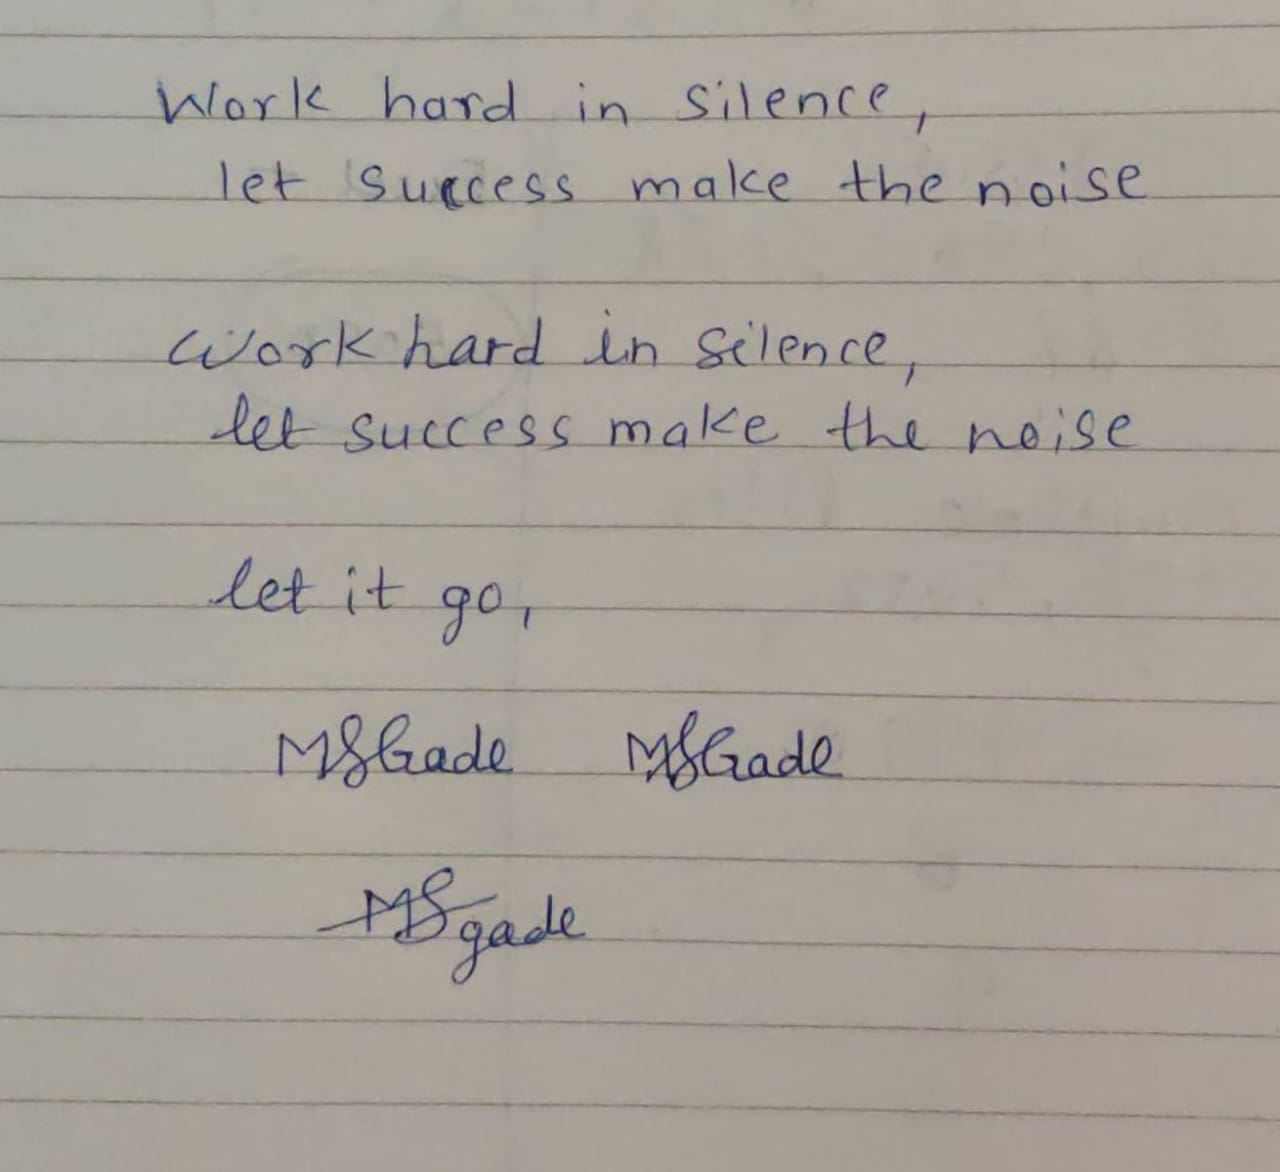 Work hard in silence,
let success make the noise
Work hard in silence,
let success make the noise
let it go,
MSGade MSGade
MSgade